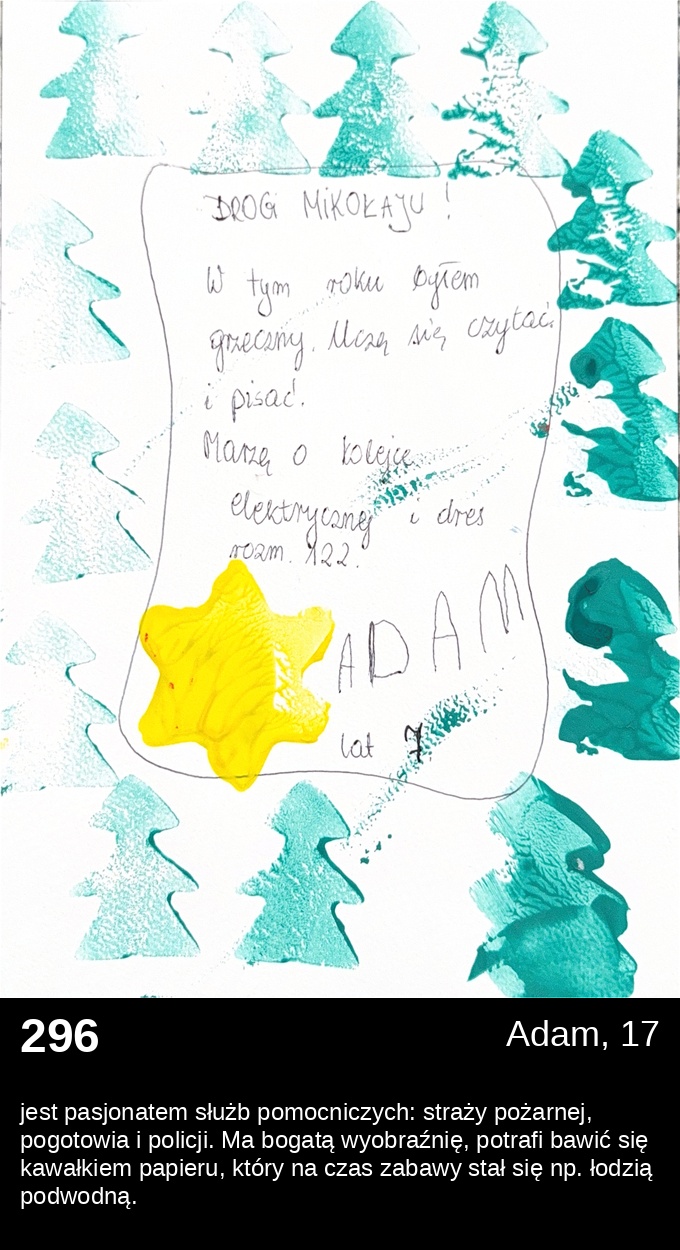 DROGI MIKOŁAJU !
W tym roku byłem
grzeczny. Uczę się czytać
i pisać.
Marzę o kolejce
elektrycznej i dres
rozm. 122.
ADAM
lat 7
296
Adam, 17
jest pasjonatem służb pomocniczych: straży pożarnej,
pogotowia i policji. Ma bogatą wyobraźnię, potrafi bawić się
kawałkiem papieru, który na czas zabawy stał się np. łodzią
podwodną.